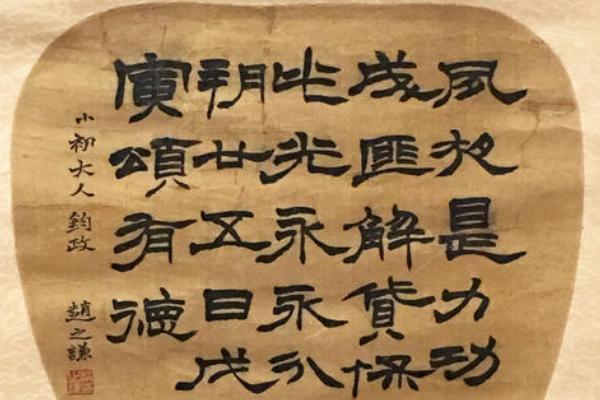 夙夜是力功
成匪解貨保
此光永永
朔廿五日戊
寅頌有德
小初大人鈞政 趙之謙